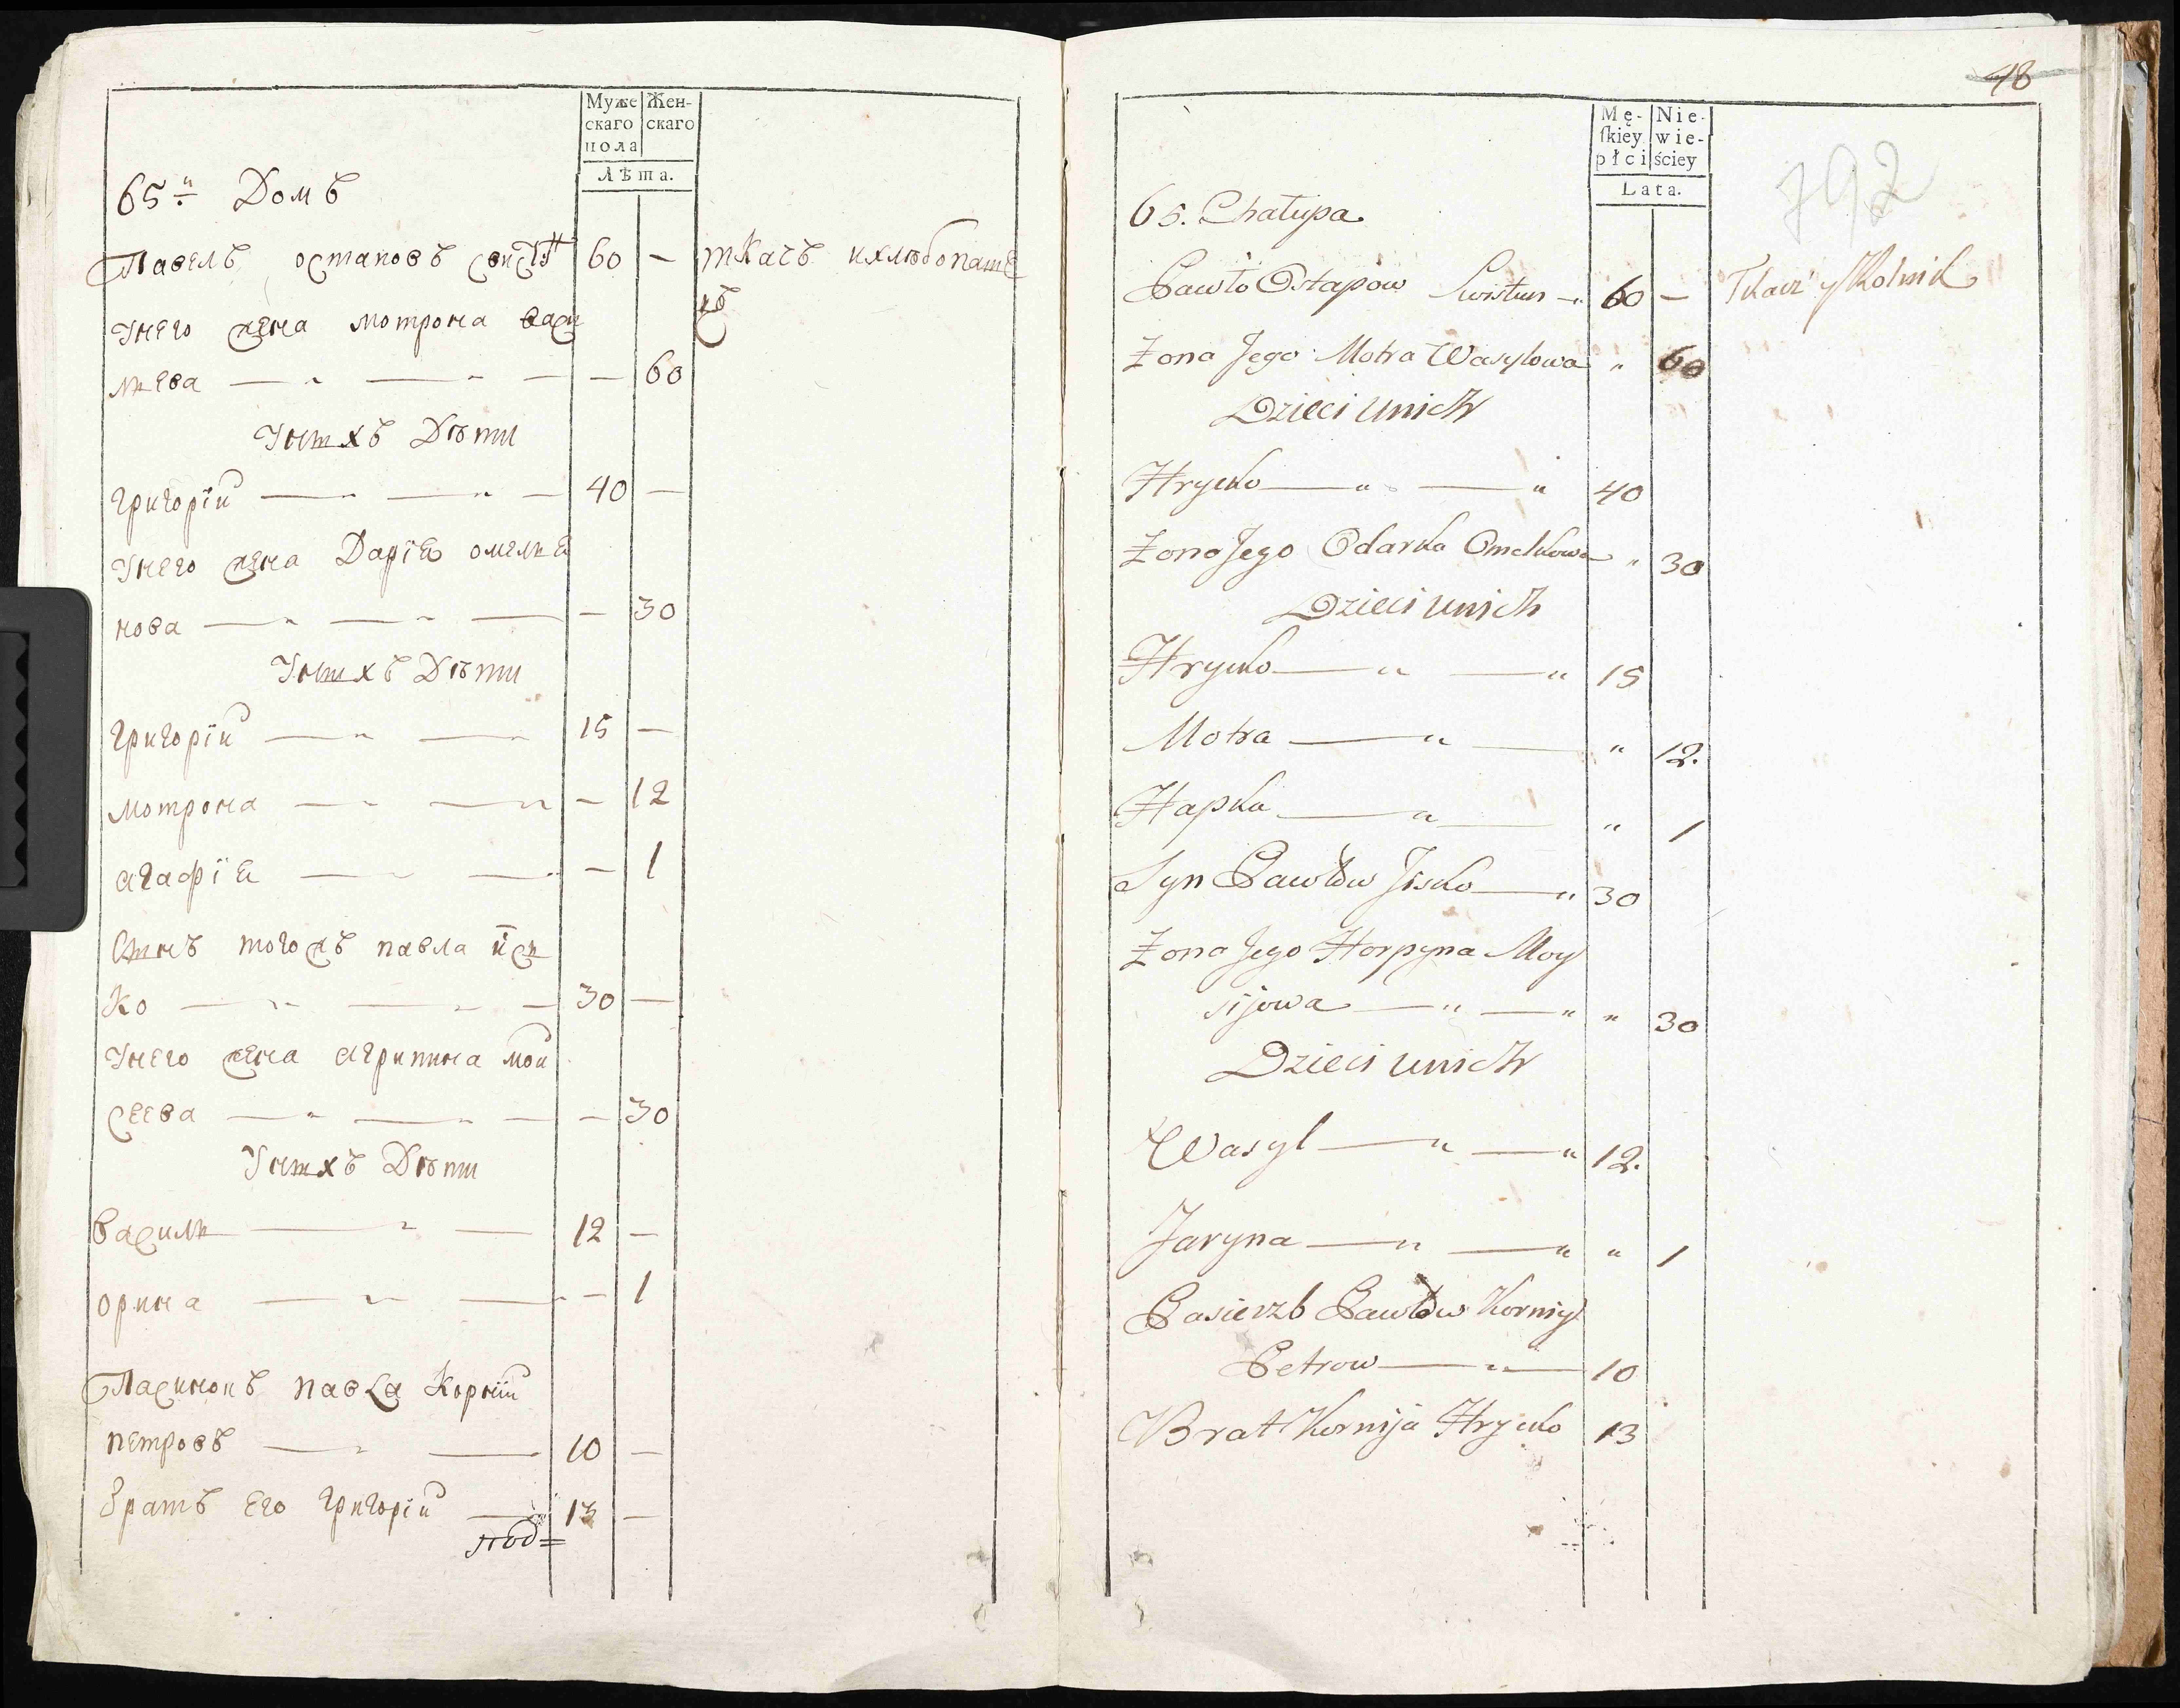 Муже Жен-
скаго скаго
пола
Лѣта.
65й Домъ
Павелъ остаповъ свистун 60 — ткачъ ихлѣбопаше
цъ
Унего жена мотрона васи
лиева — " — " — — 60
Унихъ Дѣти
григорїй — " — " — 40 —
Унего жена Дарїя омеля
нова — " — " — — 30
Унихъ Дѣти
григорїй — " — " 15 —
мотрона — " — " — 12
агафїя — " — " — 1
Сынъ тогожъ павла иси
ко — " — " — 30 —
Унего жена агрипина мои
сеева — " — " — — 30
Унихъ Дѣти
василь — " — 12 —
орина — " — " — 1
Пасинокъ павла Корнїй
петровъ — " — 10 —
братъ его григорїй — 13 —
под=
48
792
Mę- Nie-
ſkiey wie-
płci ściey
Lata.
65. Chałupa
Pawło Ostapow Swistun — " 60 — Tkacz y Rolnik
Żona Jego Motra Wasylowa " 60
Dzieci unich
Hrycko — " — " 40
Żona Jego Odarka Omelkowa " 30
Dzieci unich
Hrycko — " — " 15
Motra — " — " 12.
Hapka — " — " 1
Syn Pawłow Jśko — " 30
Żona Jego Horpyna Moy
sijowa — " — " " 30
Dzieci unich
Wasyl — " — " 12.
Jaryna — " — " " 1
Pasierzb Pawłow Korniy
Petrow — " — 10
Brat Kornija Hrycko 13